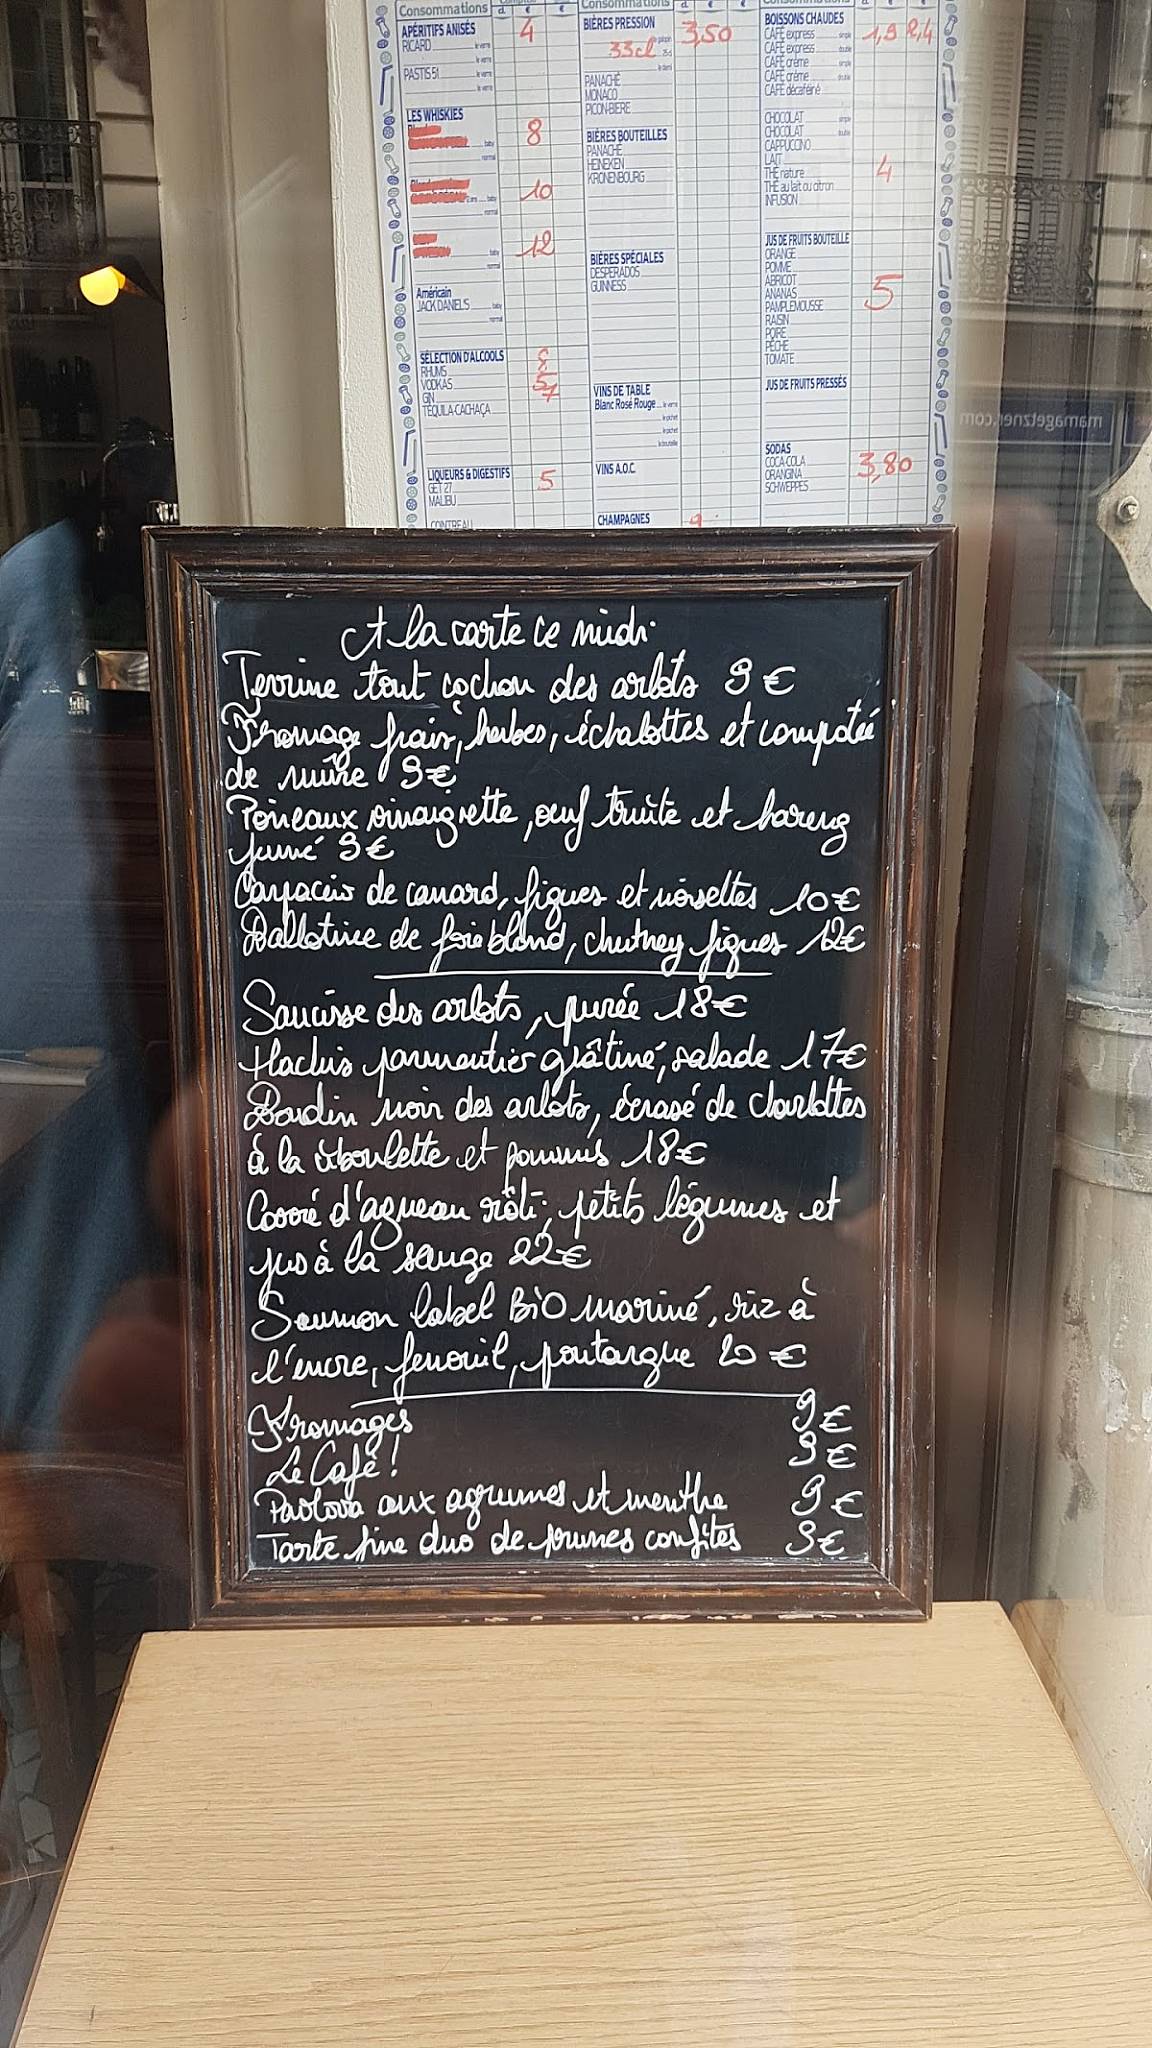 Consommations
APÉRITIFS ANISÉS 4
RICARD le verre
le verre
PASTIS 51 le verre
le verre
LES WHISKIES
8
baby
normal
10
baby
normal
12
baby
normal
Américain
JACK DANIEL'S baby
normal
SÉLECTION D'ALCOOLS
RHUMS
VODKAS 5
GIN 7
TEQUILA-CACHAÇA
LIQUEURS & DIGESTIFS 5
GET 27
MALIBU
COINTREAU
Consommations
BIÈRES PRESSION 3,50
33cl
le demi
PANACHÉ
MONACO
PICON-BIERE
BIÈRES BOUTEILLES
PANACHÉ
HEINEKEN
KRONENBOURG
BIÈRES SPÉCIALES
DESPERADOS
GUINNESS
VINS DE TABLE
Blanc Rosé Rouge le verre
le pichet
le pichet
la bouteille
VINS A.O.C.
CHAMPAGNES
Consommations
BOISSONS CHAUDES
CAFÉ express simple 1,9 2,4
CAFÉ express double
CAFÉ crème simple
CAFÉ crème double
CAFÉ décaféiné
CHOCOLAT simple
CHOCOLAT double
CAPPUCCINO
LAIT
THÉ nature 4
THÉ au lait ou citron
INFUSION
JUS DE FRUITS BOUTEILLE
ORANGE
POMME
ABRICOT
ANANAS 5
PAMPLEMOUSSE
RAISIN
POIRE
PÊCHE
TOMATE
JUS DE FRUITS PRESSÉS
SODAS
COCA-COLA 3,80
ORANGINA
SCHWEPPES
mamagetznet.com
A la carte ce midi
Terrine tout cochon des arlots 9€
Fromage frais, herbes, échalottes et compotée
de mûre 9€
Poireaux vinaigrette, oeuf truite et hareng
fumé 9€
Carpaccio de canard, figues et noisettes 10€
Ballotine de foie blond, chutney figues 12€
Saucisse des arlots, purée 18€
Hachis parmentier grâtiné, salade 17€
Boudin noir des arlots, écrasé de charlottes
à la ciboulette et pommes 18€
Carré d'agneau rôti, petits légumes et
jus à la sauge 22€
Saumon label BiO mariné, riz à
l'encre, fenouil, poutargue 20€
Fromages 9€
Le Café! 9€
Pavlova aux agrumes et menthe 9€
Tarte fine duo de prunes confites 9€